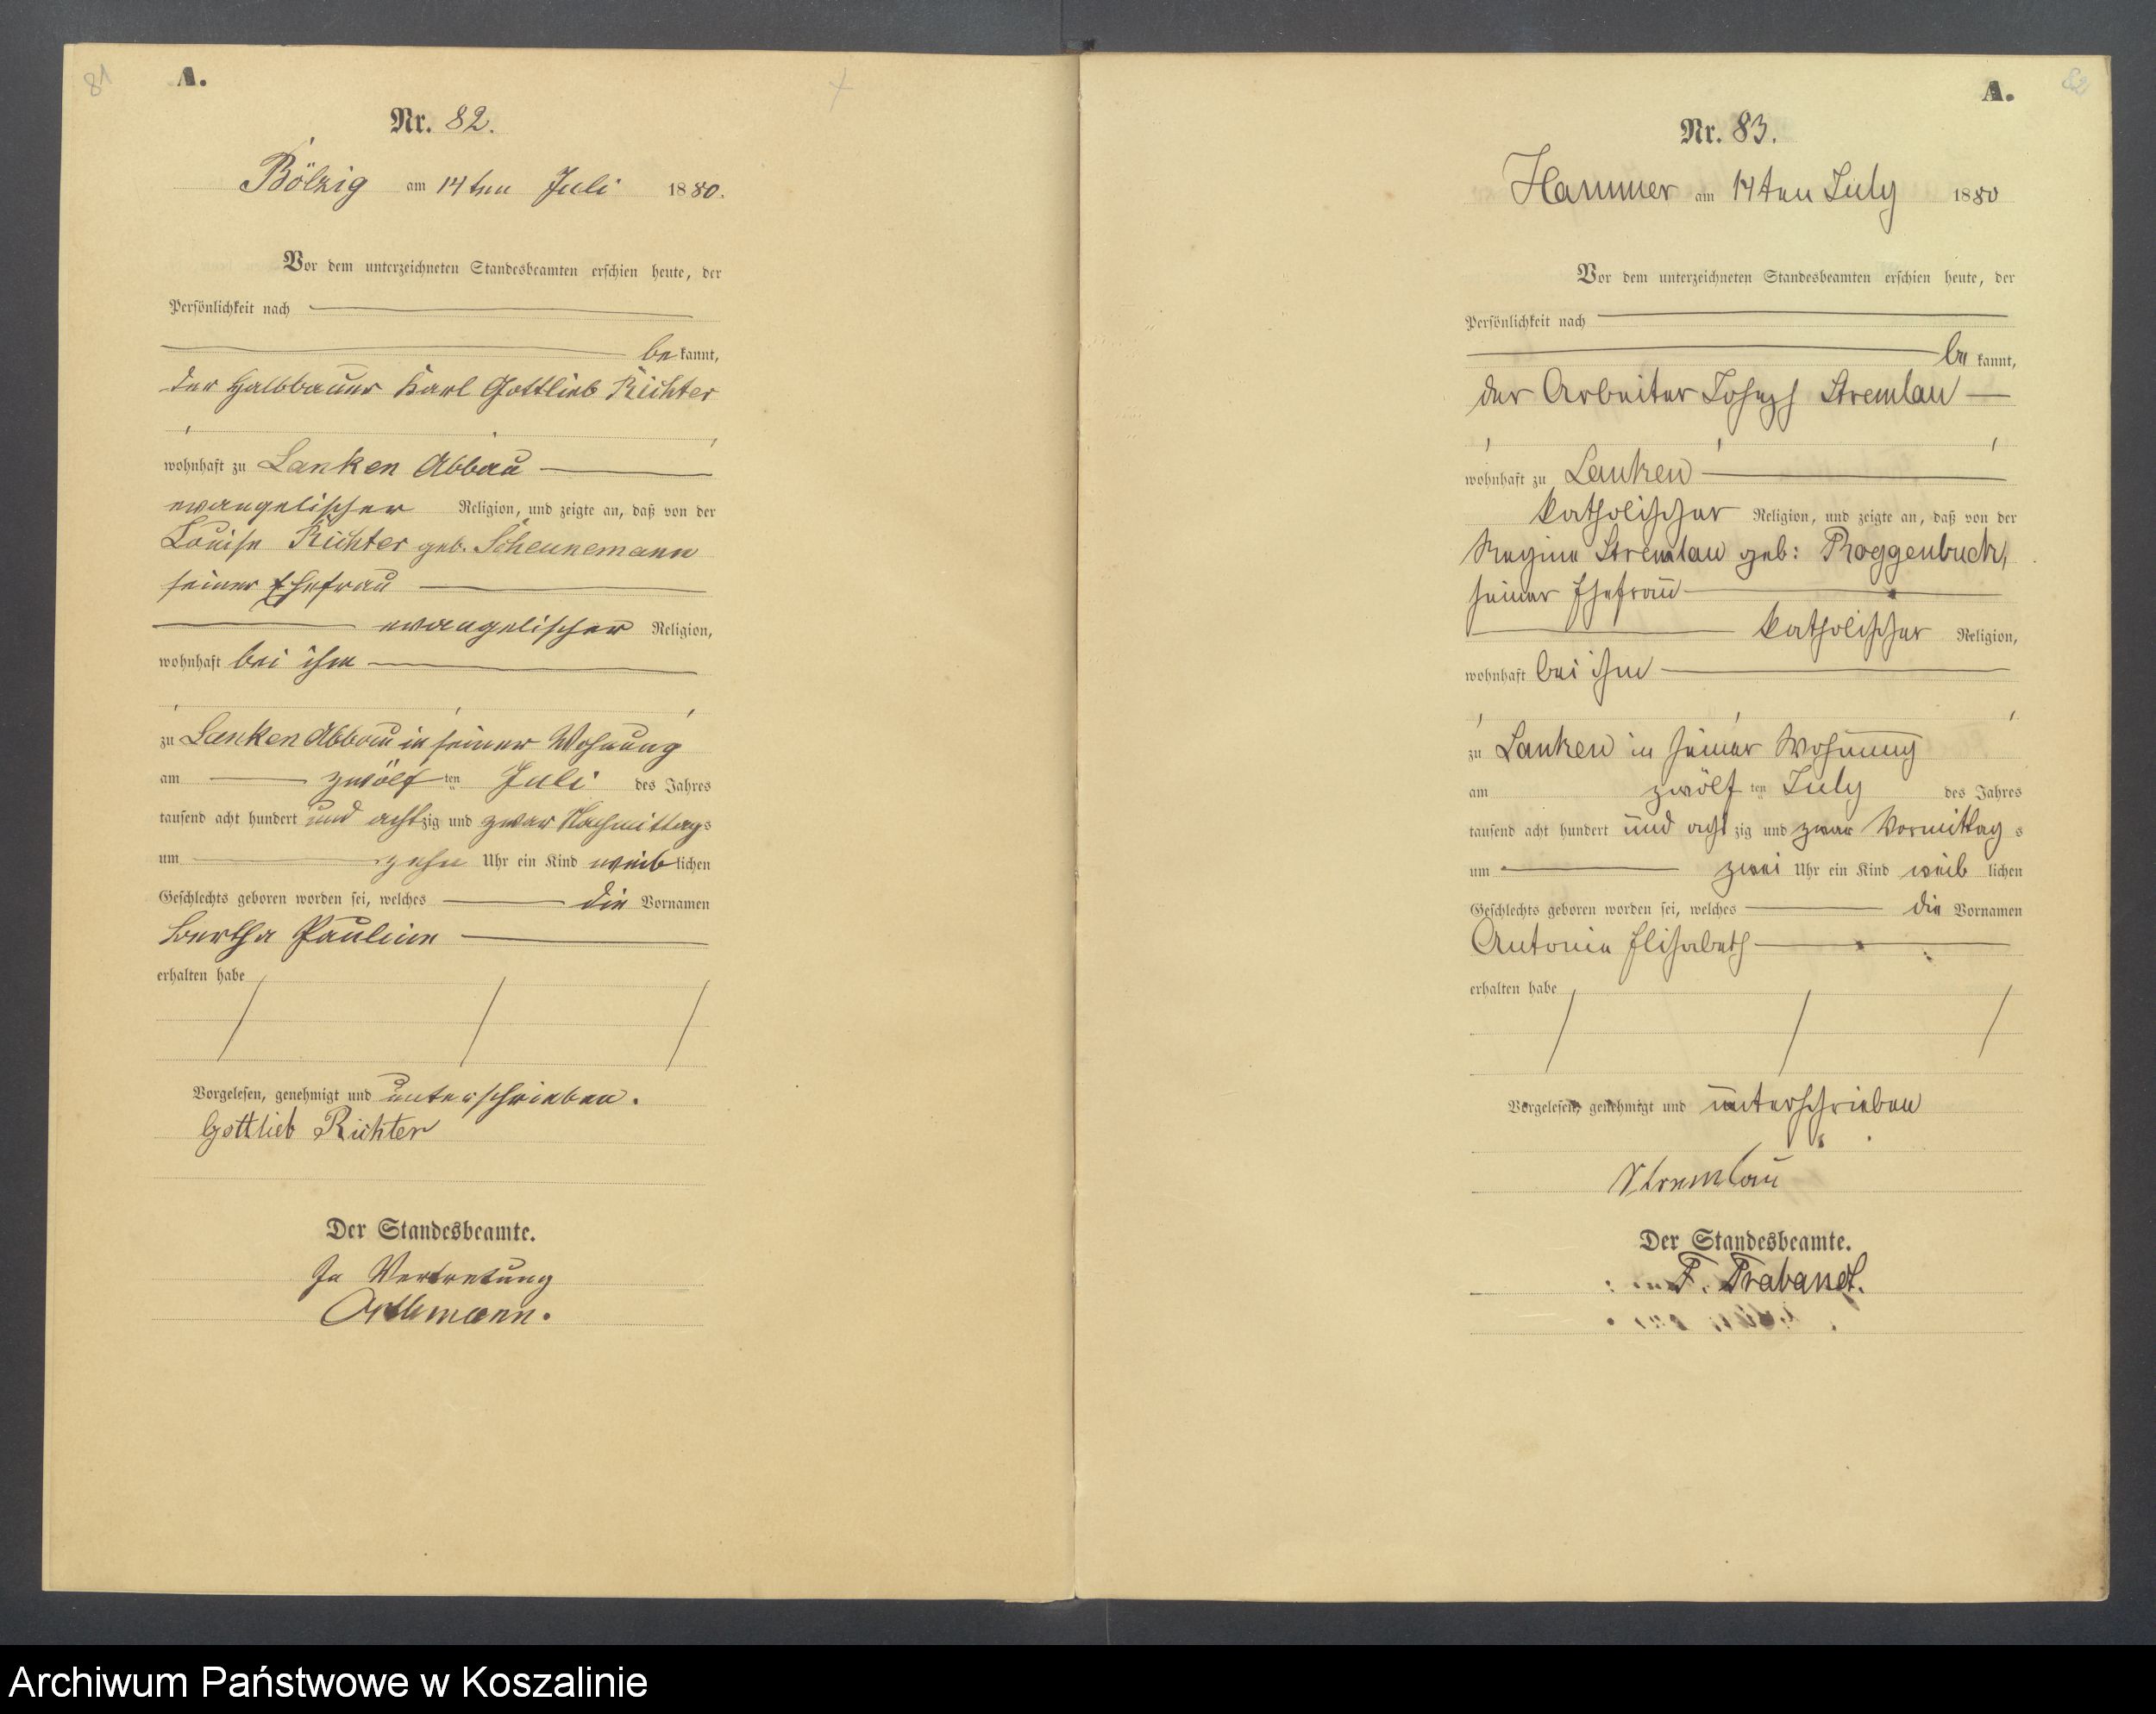 81
A.
Nr. 82.
Bölzig am 14ten Juli 1880.
Vor dem unterzeichneten Standesbeamten erschien heute, der
Persönlichkeit nach
bekannt,
der Halbbauer Karl Gottlieb Richter
wohnhaft zu Lanken Abbau
evangelischer Religion, und zeigte an, daß von der
Louise Richter geb. Scheunemann
seiner Ehefrau
evangelischer Religion,
wohnhaft bei ihm
zu Lanken Abbau in seiner Wohnung
am zwölf ten Juli des Jahres
tausend acht hundert und achtzig und zwar Nachmittags
um zehn Uhr ein Kind weiblichen
Geschlechts geboren worden sei, welches die Vornamen
Bertha Pauline
erhalten habe
Vorgelesen, genehmigt und unterschrieben.
Gottlieb Richter
Der Standesbeamte.
In Vertretung
A.
82
Nr. 83.
Hammer am 14ten July 1880
Vor dem unterzeichneten Standesbeamten erschien heute, der
Persönlichkeit nach
be kannt,
der Arbeiter Joseph Stremlau
wohnhaft zu Lanken
katholischer Religion, und zeigte an, daß von der
Regine Stremlau geb: Roggenbuck,
seiner Ehefrau
katholischer Religion,
wohnhaft bei ihm
zu Lanken in seiner Wohnung
am zwölf ten July des Jahres
tausend acht hundert und acht zig und zwar Vormittag s
um zwei Uhr ein Kind weib lichen
Geschlechts geboren worden sei, welches die Vornamen
Antonie Elisabeth
erhalten habe
Vorgelesen, genehmigt und unterschrieben
Stremlau
Der Standesbeamte.
F. Trabandt.
Archiwum Państwowe w Koszalinie